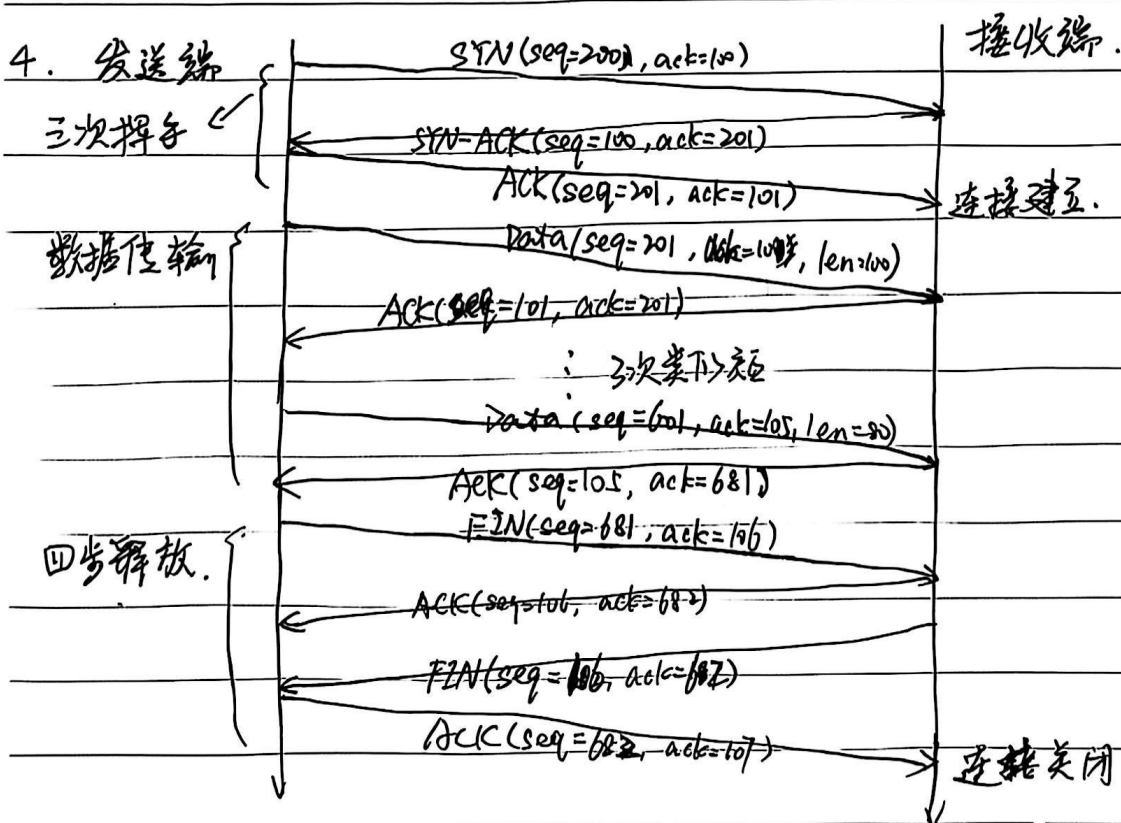 4. 发送端
接收端.
SYN(seq=200, ack=100)
三次握手
SYN-ACK(seq=100, ack=201)
ACK(seq=201, ack=101)
连接建立.
数据传输
Data(seq=201, len=100)
ACK(seq=101, ack=201)
⋮ 3次类下
Data(seq=601, ack=105, len=80)
ACK(seq=105, ack=681)
四步释放.
FIN(seq=681, ack=106)
ACK(seq=106, ack=682)
FIN(seq=106, ack=682)
ACK(seq=682, ack=107)
连接关闭